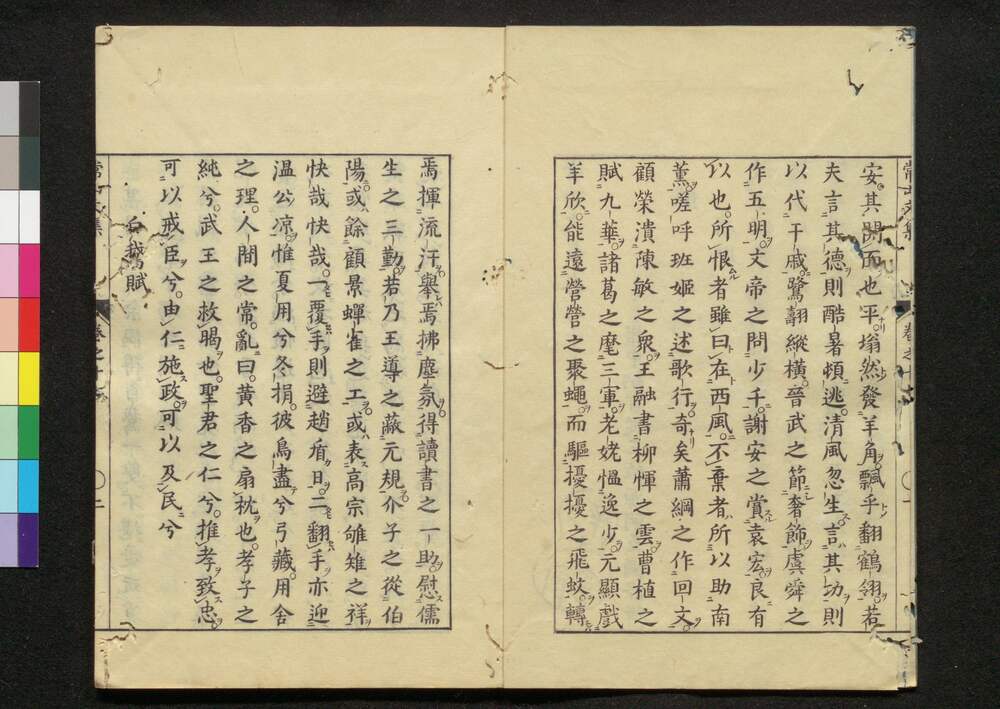 安其閉而也乎塕然發羊角飄乎翻鶴翎若
夫言其德則酷暑頓逃清風忽生言其功則
以代干戚鷺翿縱橫晉武之節奢飾虞舜之
作五明文帝之問少千謝安之賞袁宏良有
以也所恨者雖曰在西風不棄者所以助南
薰嗟呼班姬之述歌行奇矣蕭綱之作回文
顧榮潰陳敏之衆王融書柳惲之雲曹植之
賦九華諸葛之麾三軍老姥慍逸少元顯戲
羊欣能遠營營之聚蠅而驅擾擾之飛蚊轉
焉揮流汗舉焉拂塵氛得讀書之一助慰儒
生之三勤若乃王導之蔽元規介子之從伯
陽或餘顧景蟬雀之工或表高宗雊雉之祥
快哉快哉一覆手則避趙盾日二翻手亦迎
溫公凉惟夏用兮冬捐彼鳥盡兮弓藏用舍
之理人間之常亂曰黄香之扇枕也孝子之
純兮武王之救暍也聖君之仁兮推孝致忠
可以戒臣兮由仁施政可以及民兮
白鵝賦